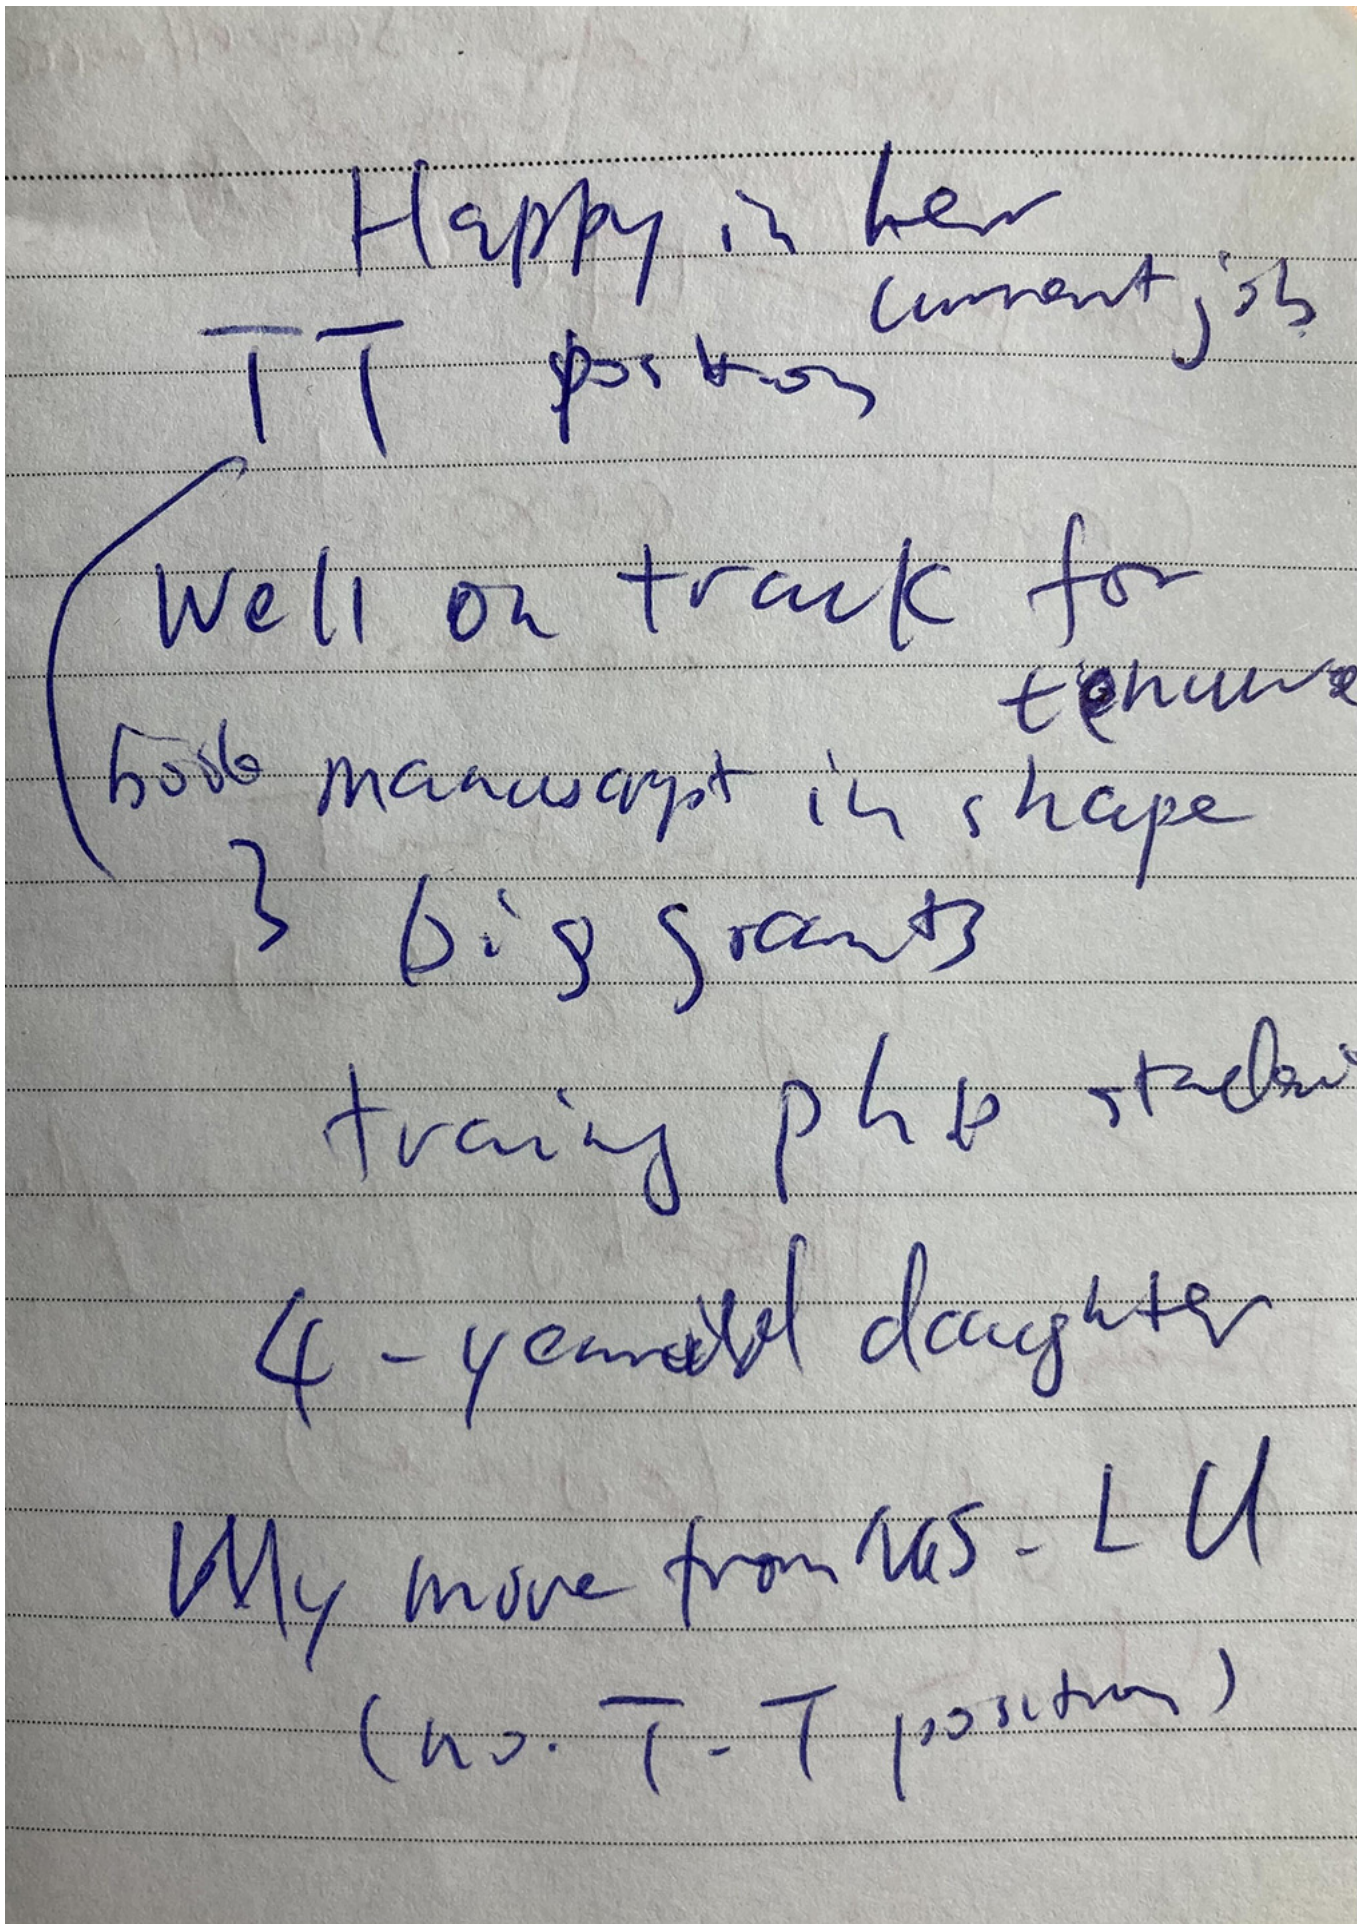 Happy in her
current job
TT position
Well on track for
tenure
book manuscript in shape
3 big grants
traing phD
4-yearold daughter
My move from US - LU
(no. T-T position)